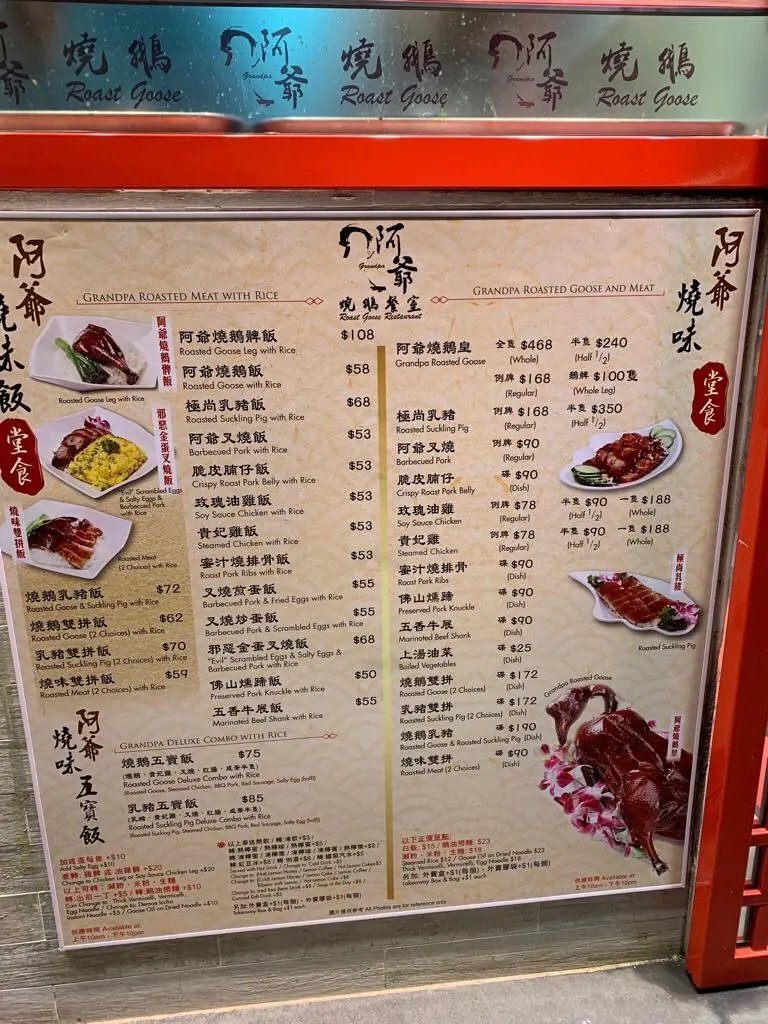 燒鵝
Roast Goose
阿爺
Grandpa
燒鵝
Roast Goose
阿爺
Grandpa
燒鵝
Roast Goose
阿爺
燒味飯
堂食
阿爺
Grandpa
燒鵝餐室
Roast Goose Restaurant
阿爺
燒味
堂食
GRANDPA ROASTED MEAT WITH RICE
阿爺燒鵝髀飯
Roasted Goose Leg with Rice
邪惡金蛋叉燒飯
"Evil" Scrambled Eggs
& Salty Eggs &
Barbecued Pork
with Rice
燒味雙拼飯
Roasted Meat
(2 Choices) with Rice
阿爺燒鵝髀飯 $108
Roasted Goose Leg with Rice
阿爺燒鵝飯 $58
Roasted Goose with Rice
極尚乳豬飯 $68
Roasted Suckling Pig with Rice
阿爺叉燒飯 $53
Barbecued Pork with Rice
脆皮腩仔飯 $53
Crispy Roast Pork Belly with Rice
玫瑰油雞飯 $53
Soy Sauce Chicken with Rice
貴妃雞飯 $53
Steamed Chicken with Rice
蜜汁燒排骨飯 $53
Roast Pork Ribs with Rice
叉燒煎蛋飯 $55
Barbecued Pork & Fried Eggs with Rice
叉燒炒蛋飯 $55
Barbecued Pork & Scrambled Eggs with Rice
邪惡金蛋叉燒飯 $68
"Evil" Scrambled Eggs & Salty Eggs &
Barbecued Pork with Rice
佛山燻蹄飯 $50
Preserved Pork Knuckle with Rice
五香牛展飯 $55
Marinated Beef Shank with Rice
燒鵝乳豬飯 $72
Roasted Goose & Suckling Pig with Rice
燒鵝雙拼飯 $62
Roasted Goose (2 Choices) with Rice
乳豬雙拼飯 $70
Roasted Suckling Pig (2 Choices) with Rice
燒味雙拼飯 $59
Roasted Meat (2 Choices) with Rice
阿爺
燒味五寶飯
GRANDPA DELUXE COMBO WITH RICE
燒鵝五寶飯 $75
(燒鵝・貴妃雞・叉燒・紅腸・咸蛋半隻)
Roasted Goose Deluxe Combo with Rice
(Roasted Goose, Steamed Chicken, BBQ Pork, Red Sausage, Salty Egg (half))
乳豬五寶飯 $85
(乳豬・貴妃雞・叉燒・紅腸・咸蛋半隻)
Roasted Suckling Pig Deluxe Combo with Rice
(Roasted Suckling Pig, Steamed Chicken, BBQ Pork, Red Sausage, Salty Egg (half))
加咸蛋每隻 +$10
Add Salty Egg +$10
Change to Chicken Leg or Soy Sauce Chicken Leg +$20
Can Change to : Thick Vermicelli, Vermicelli,
Egg Noodle / Change to: Demae Iccho
Instant Noodle +$5 / Goose Oil on Dried Noodle +$10
供應時間 Available at:
上午10am - 下午10pm
另加: 外賣盒+$1(每個)、外賣膠袋+$1(每個)
Takeaway Box & Bag +$1 each
圖片僅供參考 All Photos are for reference only
GRANDPA ROASTED GOOSE AND MEAT
阿爺燒鵝皇 全隻 $468 半隻 $240
Grandpa Roasted Goose (Whole) (Half 1/2)
例牌 $168 鵝髀 $100隻
(Regular) (Whole Leg)
極尚乳豬 例牌 $168 半隻 $350
Roasted Suckling Pig (Regular) (Half 1/2)
阿爺叉燒 例牌 $90
Barbecued Pork (Regular)
脆皮腩仔 碟 $90
Crispy Roast Pork Belly (Dish)
玫瑰油雞 例牌 $78 半隻 $90 一隻 $188
Soy Sauce Chicken (Regular) (Half 1/2) (Whole)
貴妃雞 例牌 $78 半隻 $90 一隻 $188
Steamed Chicken (Regular) (Half 1/2) (Whole)
蜜汁燒排骨 碟 $90
Roast Pork Ribs (Dish)
佛山燻蹄 碟 $90
Preserved Pork Knuckle (Dish)
五香牛展 碟 $90
Marinated Beef Shank (Dish)
上湯油菜 碟 $25
Boiled Vegetables (Dish)
燒鵝雙拼 碟 $172
Roasted Goose (2 Choices) (Dish)
乳豬雙拼 碟 $172
Roasted Suckling Pig (2 Choices) (Dish)
燒鵝乳豬 碟 $190
Roasted Goose & Roasted Suckling Pig (Dish)
燒味雙拼 碟 $90
Roasted Meat (2 Choices) (Dish)
極尚乳豬
Roasted Suckling Pig
Grandpa Roasted Goose
阿爺燒鵝皇
白飯, $15 / 鵝油撈麵, $23
瀨粉・米粉・生麵, $18
Steamed Rice $12 / Goose Oil on Dried Noodle $23
Thick Vermicelli, Vermicelli, Egg Noodle $18
另加: 外賣盒+$1(每個)、外賣膠袋+$1(每個)
Takeaway Box & Bag +$1 each
供應時間 Available at:
上午10am - 下午10pm